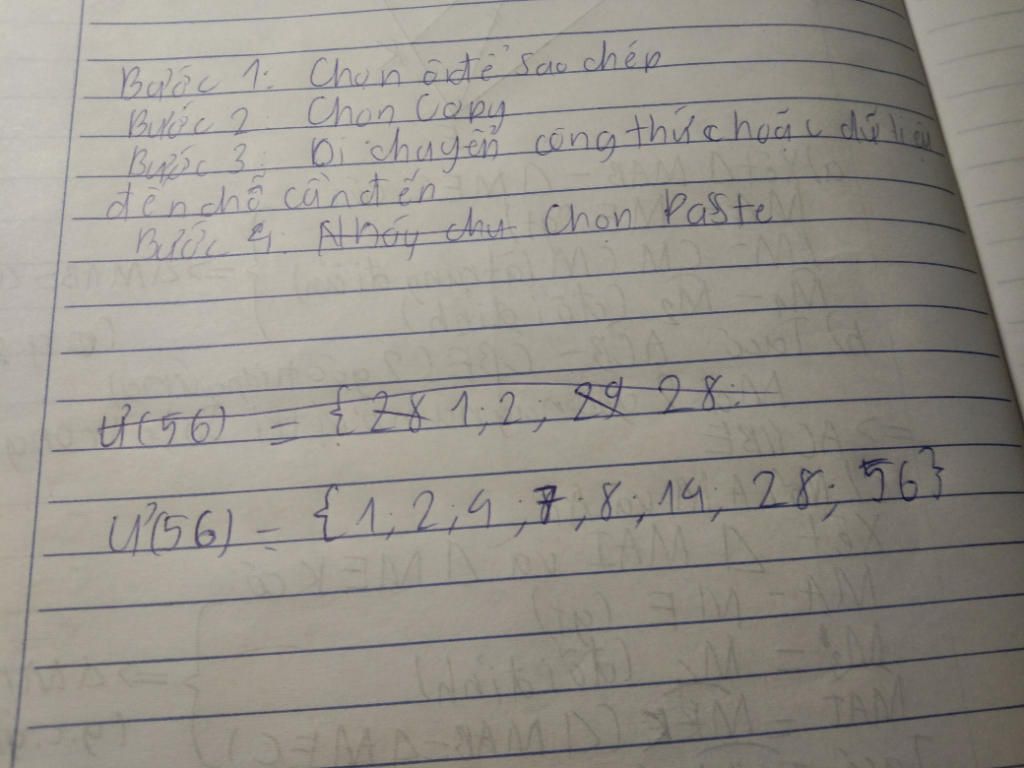 Bước 1: Chọn ô để sao chép
Bước 2: Chọn Copy
Bước 3: Di chuyển công thức hoặc dữ liệu
đến chỗ cần đến
Bước 4: Nháy chu Chọn Paste
Ư(56) = {28 1; 2; 29 28;
Ư(56) = {1; 2; 4; 7; 8; 14; 28; 56}